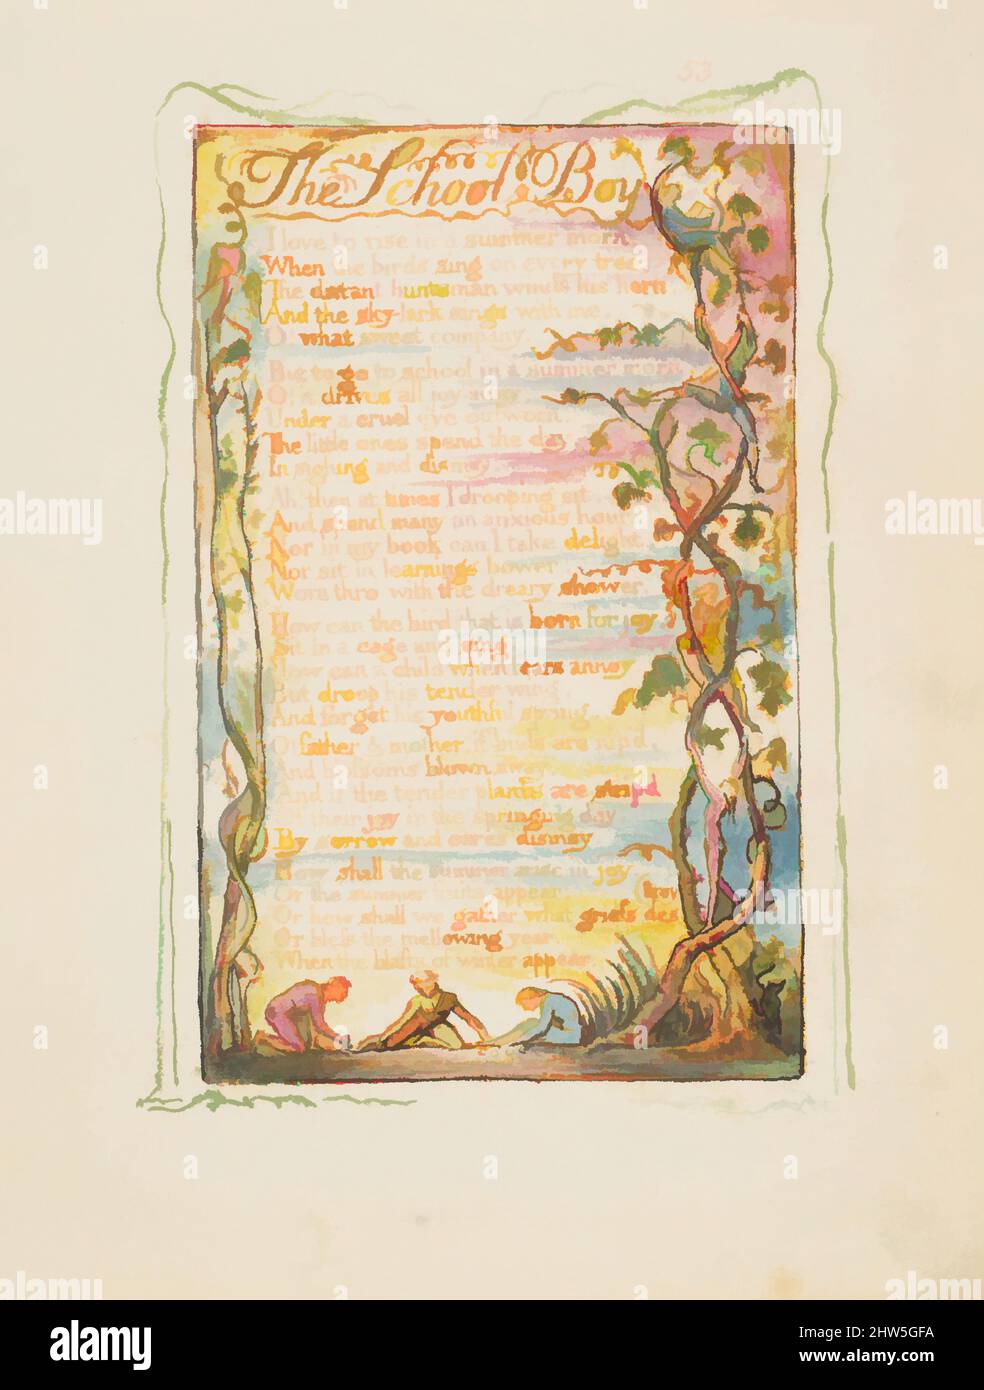 53
The School Boy
I love to rise in a summer morn
When the birds sing on every tree
The distant huntsman winds his horn
And the sky-lark sings with me.
O what sweet company.
But to go to school in a summer morn
O! it drives all joy away
Under a cruel eye outworn
The little ones spend the day
In sighing and dismay.
Ah! then at times I drooping sit
And spend many an anxious hour
Nor in my book can I take delight
Nor sit in learnings bower
Worn thro with the dreary shower.
How can the bird that is born for joy
Sit in a cage and sing
How can a child when fears annoy
But droop his tender wing
And forget his youthful spring
O! father & mother, if buds are nipd,
And blossoms blown away
And if the tender plants are stripd
Of their joy in the springing day
By sorrow and cares dismay
How shall the summer arise in joy
Or the summer fruits appear
Or how shall we gather what griefs des
(troy
Or bless the mellowing year
When the blasts of winter appear
alamy
Image ID: 2HW5GFA
www.alamy.com